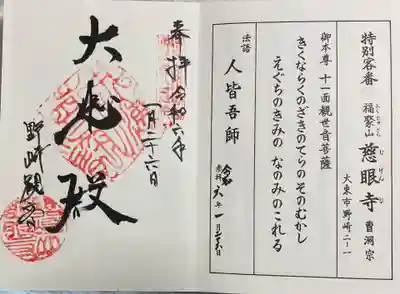 特別客番
福聚山 慈眼寺 曹洞宗
ふくじゅざん じげんじ
大東市野崎二ー一
御本尊 十一面観世音菩薩
きくならくのざきのてらのそのむかし
えぐちのきみの なのみのこれる
法語 人皆吾師
参拝 六年一月二十六日
奉拝 令和六年
一月二十六日
大悲殿
野崎観音